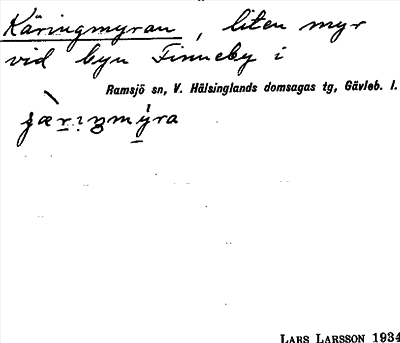 Käringmyran, liten myr
vid byn Finneby i
Ramsjö sn, V. Hälsinglands domsagas tg, Gävleb. l.
LARS LARSSON 1934